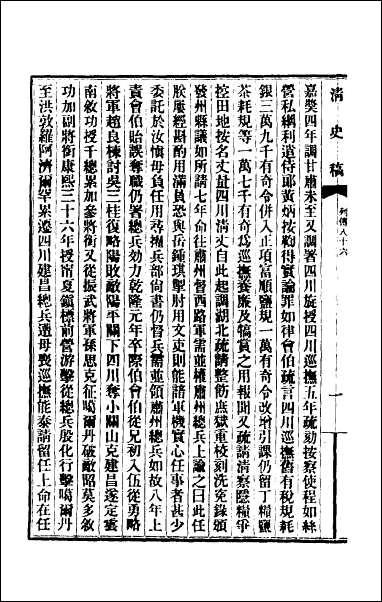 清史稿
列傳八十六
嘉獎四年調甘肅未至又調署四川旋授四川巡撫五年疏劾按察使程如絲
營私網利遣侍郎黃炳按勘得實論罪如律會伯疏言四川巡撫舊有稅規耗
銀三萬九千有奇令併入正項富順鹽規一萬有奇令改增引課仍留丁糧鹽
茶耗規等一萬七千有奇爲巡撫養廉及犒賞之用報聞又疏請清察隱糧爭
控田地按名丈量四川清丈自此起調湖北疏請整飭武昌城重校刻洗冤錄頒
發州縣議如所請七年命往肅州督西路軍需並權肅州總兵上諭之曰此任
朕屢經斟酌用滿員恐與岳鍾琪掣肘用文吏則能諳軍機實心任事者甚少
委託於汝愼毋負任用尋擢兵部尚書仍督兵需並領肅州總兵如故八年上
責會伯貽誤奪職仍署總兵効力乾隆元年卒際伯會伯從兄初入伍從勇略
將軍趙良棟討吳三桂復略陽敗敵陽平關下四川奪小關山克建昌遂定雲
南敘功授千總累加參將銜又從振武將軍孫思克征噶爾丹破敵昭莫多敘
功加副將銜康熙三十六年授甯夏鎮標前營游擊從總兵殷化行擊噶爾丹
至洪敦羅阿濟爾罕累遷四川建昌總兵遇母喪巡撫能泰請留任上命在任